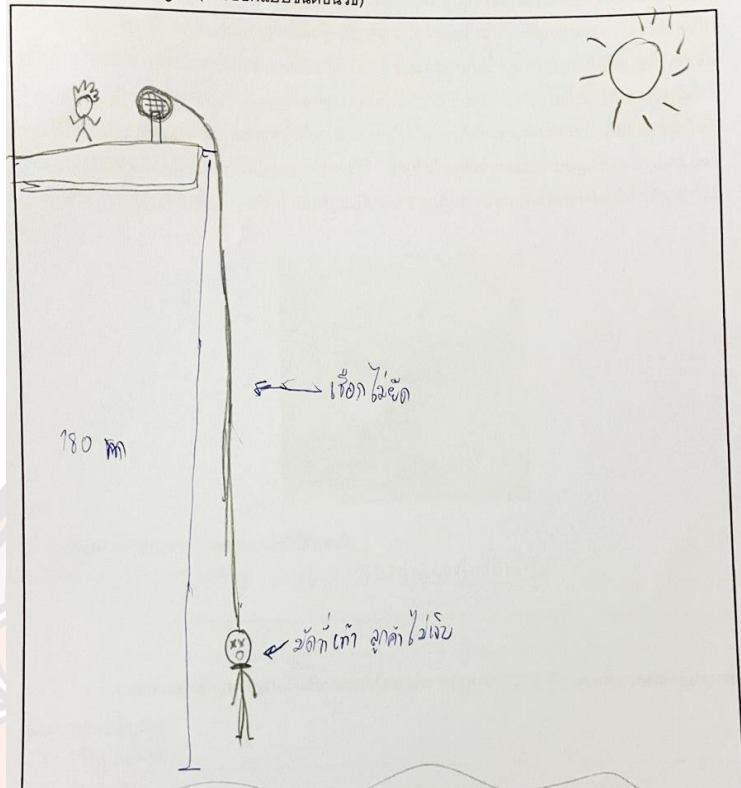 เชือกไม่ยืด
180
มัดที่เท้า ลูกค้าไม่เจ็บ